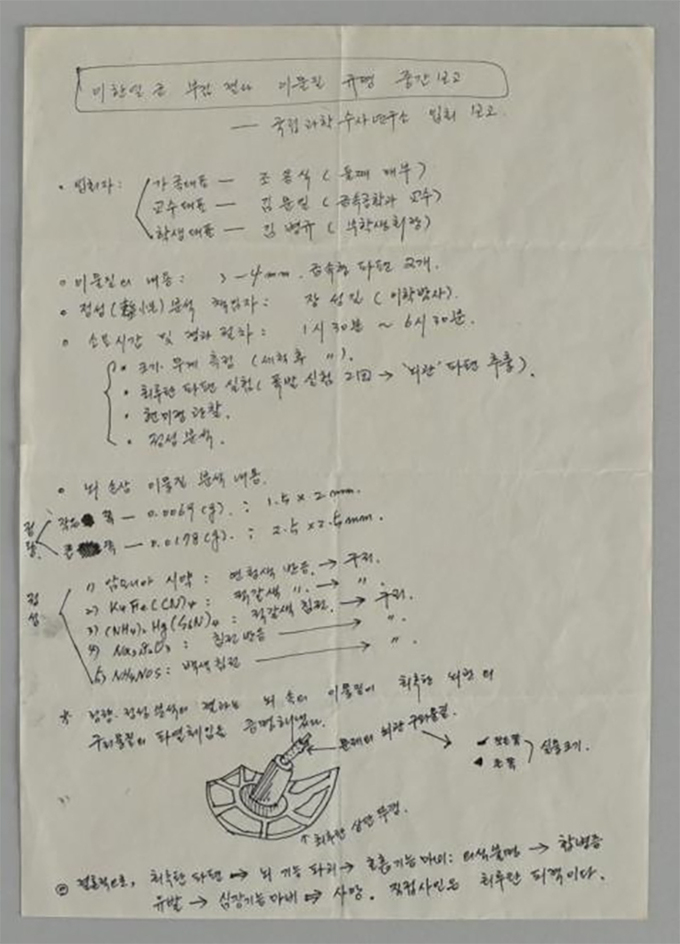 이한열 군 부검 결과 이물질 규명 중간 보고
— 국립과학수사연구소 입회 보고.
• 입회자: 가족대표 — 조용식 (둘째 매부)
교수대표 — 김문일 (금속공학과 교수)
학생대표 — 김병규 (부학생회장)
o 이물질의 내용: 3-4mm. 금속형 파편 2개.
• 정성( ) 분석 책임자: 장성일 (이학박사).
o 소요시간 및 경과 절차: 1시 30분 ~ 6시 30분.
• 크기·무게 측정 (세척후 〃).
• 최루탄 파편 실험( 폭발 실험 2回 → '뇌관' 파편 추출).
• 현미경 관찰.
• 정성 분석.
o 뇌 손상 이물질 분석 내용.
정량. 작은 쪽 — 0.0069(g). : 1.5 x 2 mm.
큰 쪽 — 0.0178(g). : 2.5 x 2.5mm.
정성 1) 암모니아 시약: 연청색 반응. → 구리.
2) K4Fe(CN)4: 적갈색 〃. → 〃.
3) (NH4)2Hg(SCN)4: 적갈색 침전. → 구리.
4) 침전 반응 → 〃.
5) 백색 침전 → 〃.
* 정량·정성 분석의 결과는 뇌 속의 이물질이 최루탄 뇌관의
구리물질의 파편체임을 증명해냈다.
문제의 뇌관 구리물질.
작은쪽
큰 쪽
실물크기.
↑ 최루탄 상단 뚜껑.
◎ 결론적으로, 최루탄 파편 → 뇌 기능 파괴 → 호흡기능마비: 의식불명 → 합병증
유발 → 심장기능마비 → 사망. 직접사인은 최루탄 피격이다.